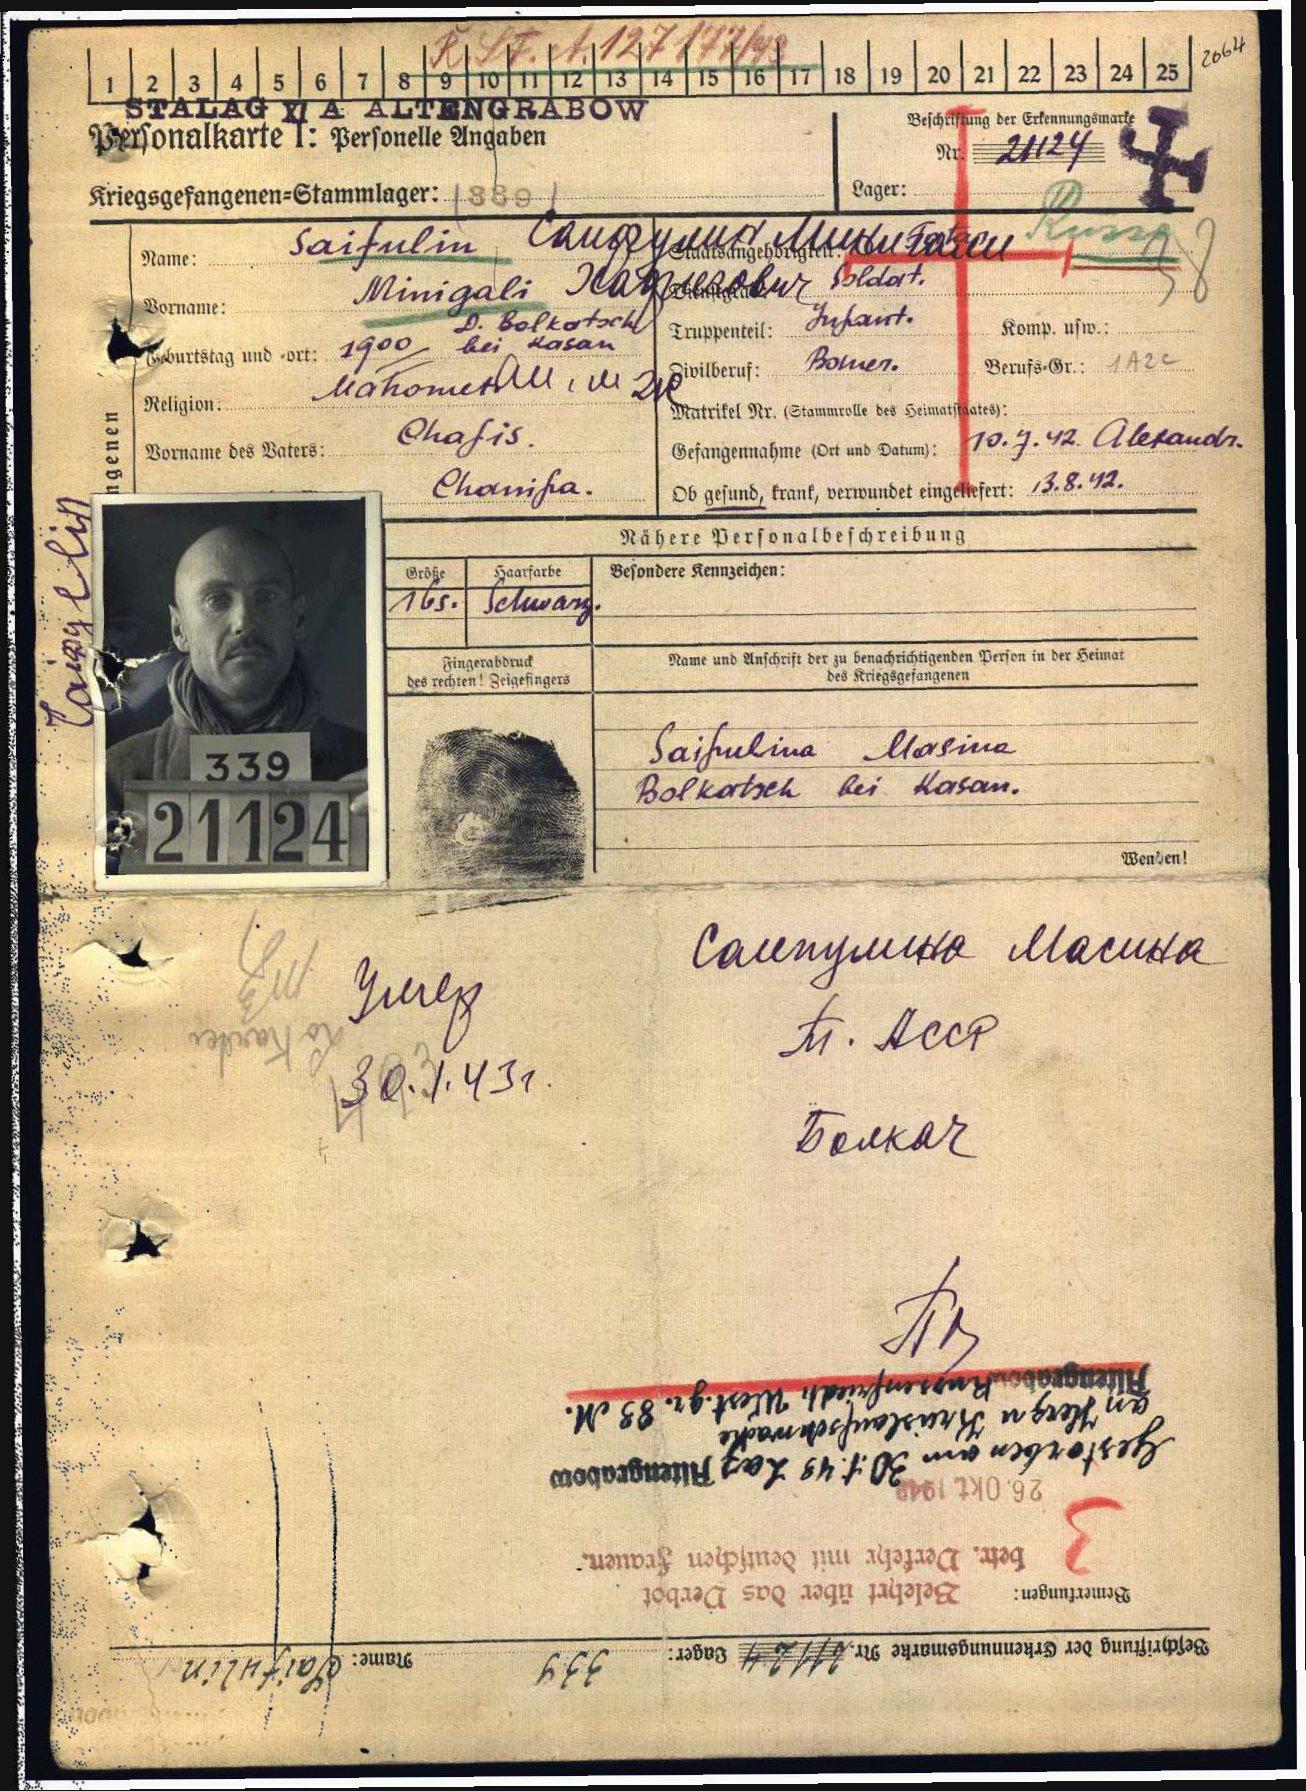 K.St.A. 127 177/43
2064
1 2 3 4 5 6 7 8 9 10 11 12 13 14 15 16 17 18 19 20 21 22 23 24 25
STALAG XI A ALTENGRABOW
Personalkarte I: Personelle Angaben
Kriegsgefangenen=Stammlager: (339)
Beschriftung der Erkennungsmarke
Nr. 21124
Lager:
Name: Saifulin
Staatsangehörigkeit: Russe
Vorname: Minigali
Dienstgrad: Soldat.
Geburtstag und -ort: 1900 D. Bolkatsch bei Kasan
Truppenteil: Infant. Komp. usw.:
Religion: Mahomet
Zivilberuf: Bauer. Berufs-Gr.: 1A2c
Matrikel Nr. (Stammrolle des Heimatstaates):
Vorname des Vaters: Chafis.
Gefangennahme (Ort und Datum): 10.7.42. Alexandr.
Chanifa.
Ob gesund, krank, verwundet eingeliefert: 13.8.42.
ngenen
Nähere Personalbeschreibung
Größe Haarfarbe Besondere Kennzeichen:
165. Schwarz.
Fingerabdruck
des rechten! Zeigefingers
Name und Anschrift der zu benachrichtigenden Person in der Heimat
des Kriegsgefangenen
Saifulina Masina
Bolkatsch bei Kasan.
Wenden!
339
21124
Умер
30.1.43г.
Сайпулина Масина
Т. АССР
Болкач
Beschriftung der Erkennungsmarke Nr. 21124 Lager: 339 Name: Saifulin
Bemerkungen: Belehrt über das Verbot
betr. Verkehr mit deutschen Frauen.
3
26. OKT. 1942
Gestorben am 30.1.43 Laz. Altengrabow
an Herz u. Kreislaufschwäche
Altengrabow Russenfriedh. West. gr. 83 M.